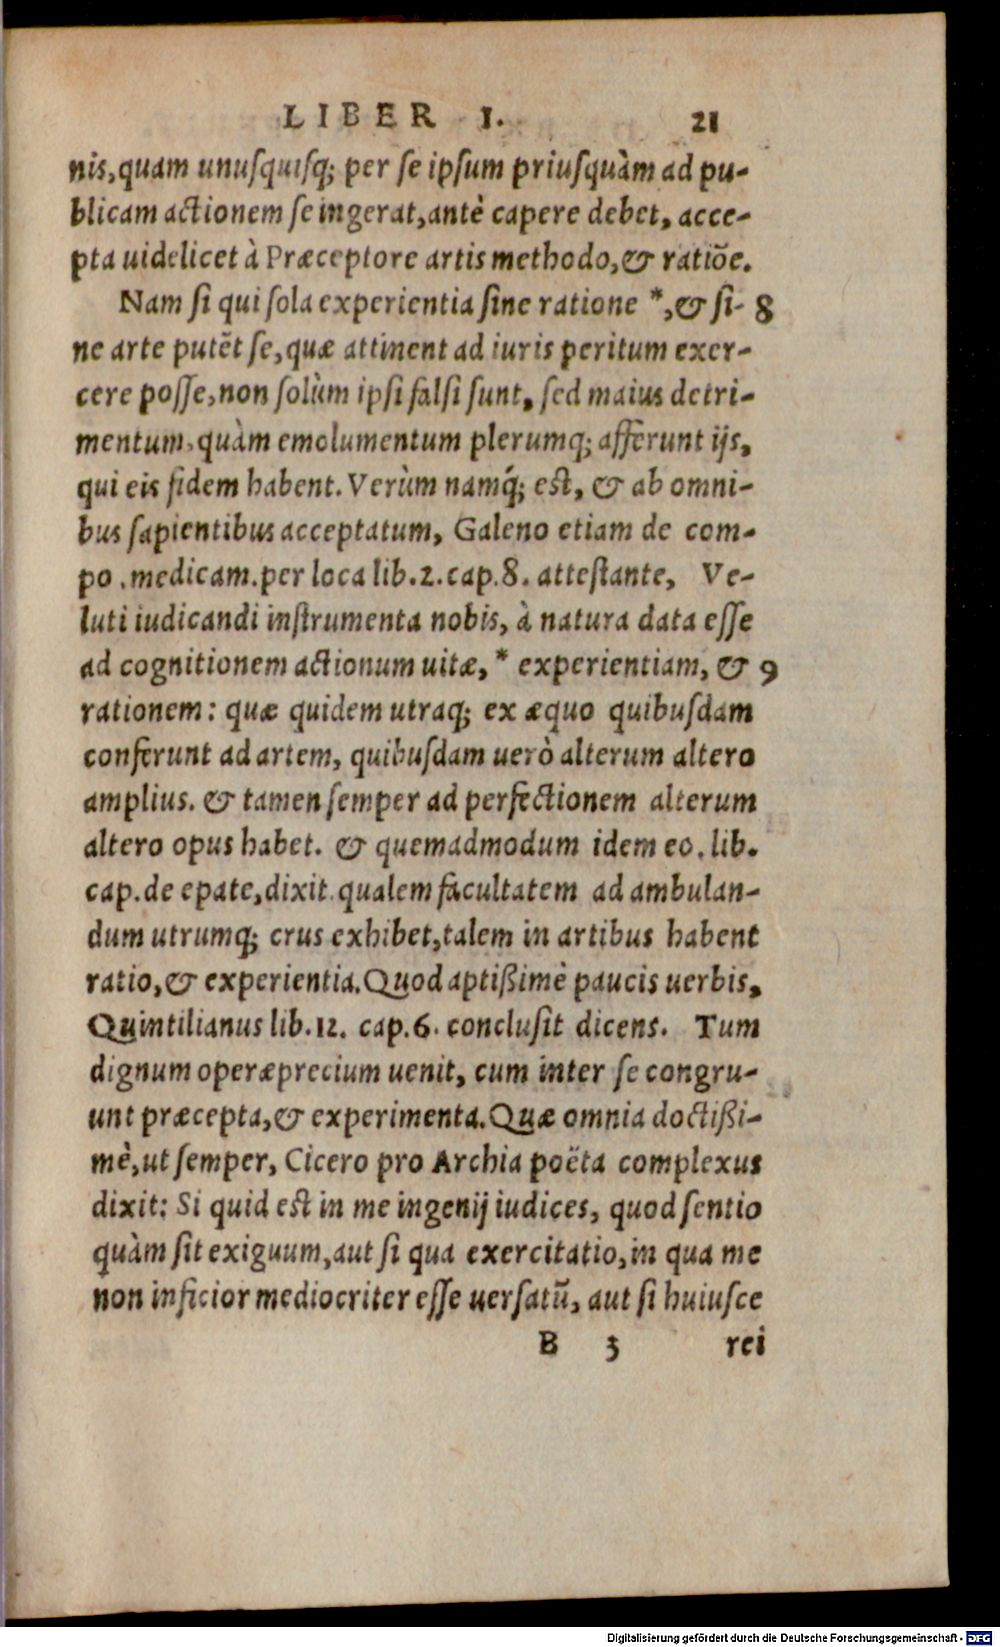 LIBER I. 21
nis, quam unusquisq; per se ipsum priusquàm ad pu-
blicam actionem se ingerat, antè capere debet, acce-
pta uidelicet à Præceptore artis methodo, & ratiõe.
Nam si qui sola experientia sine ratione *, & si- 8
ne arte putẽt se, quæ attinent ad iuris peritum exer-
cere posse, non solùm ipsi falsi sunt, sed maius detri-
mentum, quàm emolumentum plerumq; afferunt ijs,
qui eis fidem habent. Verùm namq́; est, & ab omni-
bus sapientibus acceptatum, Galeno etiam de com-
po. medicam. per loca lib. 2. cap. 8. attestante, Ve-
luti iudicandi instrumenta nobis, à natura data esse
ad cognitionem actionum uitæ, * experientiam, & 9
rationem: quæ quidem utraq; ex æquo quibusdam
conferunt ad artem, quibusdam uerò alterum altero
amplius. & tamen semper ad perfectionem alterum
altero opus habet. & quemadmodum idem eo. lib.
cap. de epate, dixit. qualem facultatem ad ambulan-
dum utrumq; crus exhibet, talem in artibus habent
ratio, & experientia. Quod aptißimè paucis uerbis,
Quintilianus lib. 12. cap. 6. conclusit dicens. Tum
dignum operæprecium uenit, cum inter se congru-
unt præcepta, & experimenta. Quæ omnia doctißi-
mè, ut semper, Cicero pro Archia poëta complexus
dixit: Si quid est in me ingenij iudices, quod sentio
quàm sit exiguum, aut si qua exercitatio, in qua me
non inficior mediocriter esse uersatũ, aut si huiusce
B 3 rei
Digitalisierung gefördert durch die Deutsche Forschungsgemeinschaft - DFG